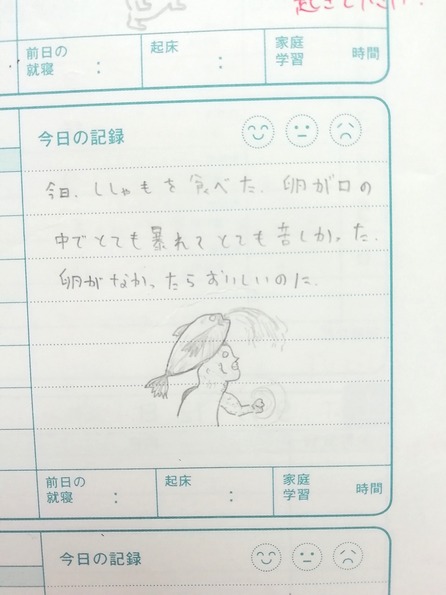 起きてください!
前日の就寝 : 起床 : 家庭学習 時間
今日の記録
今日、ししゃもを食べた。卵が口の
中でとても暴れてとても苦しかった。
卵がなかったらおいしいのに。
前日の就寝 : 起床 : 家庭学習 時間
今日の記録